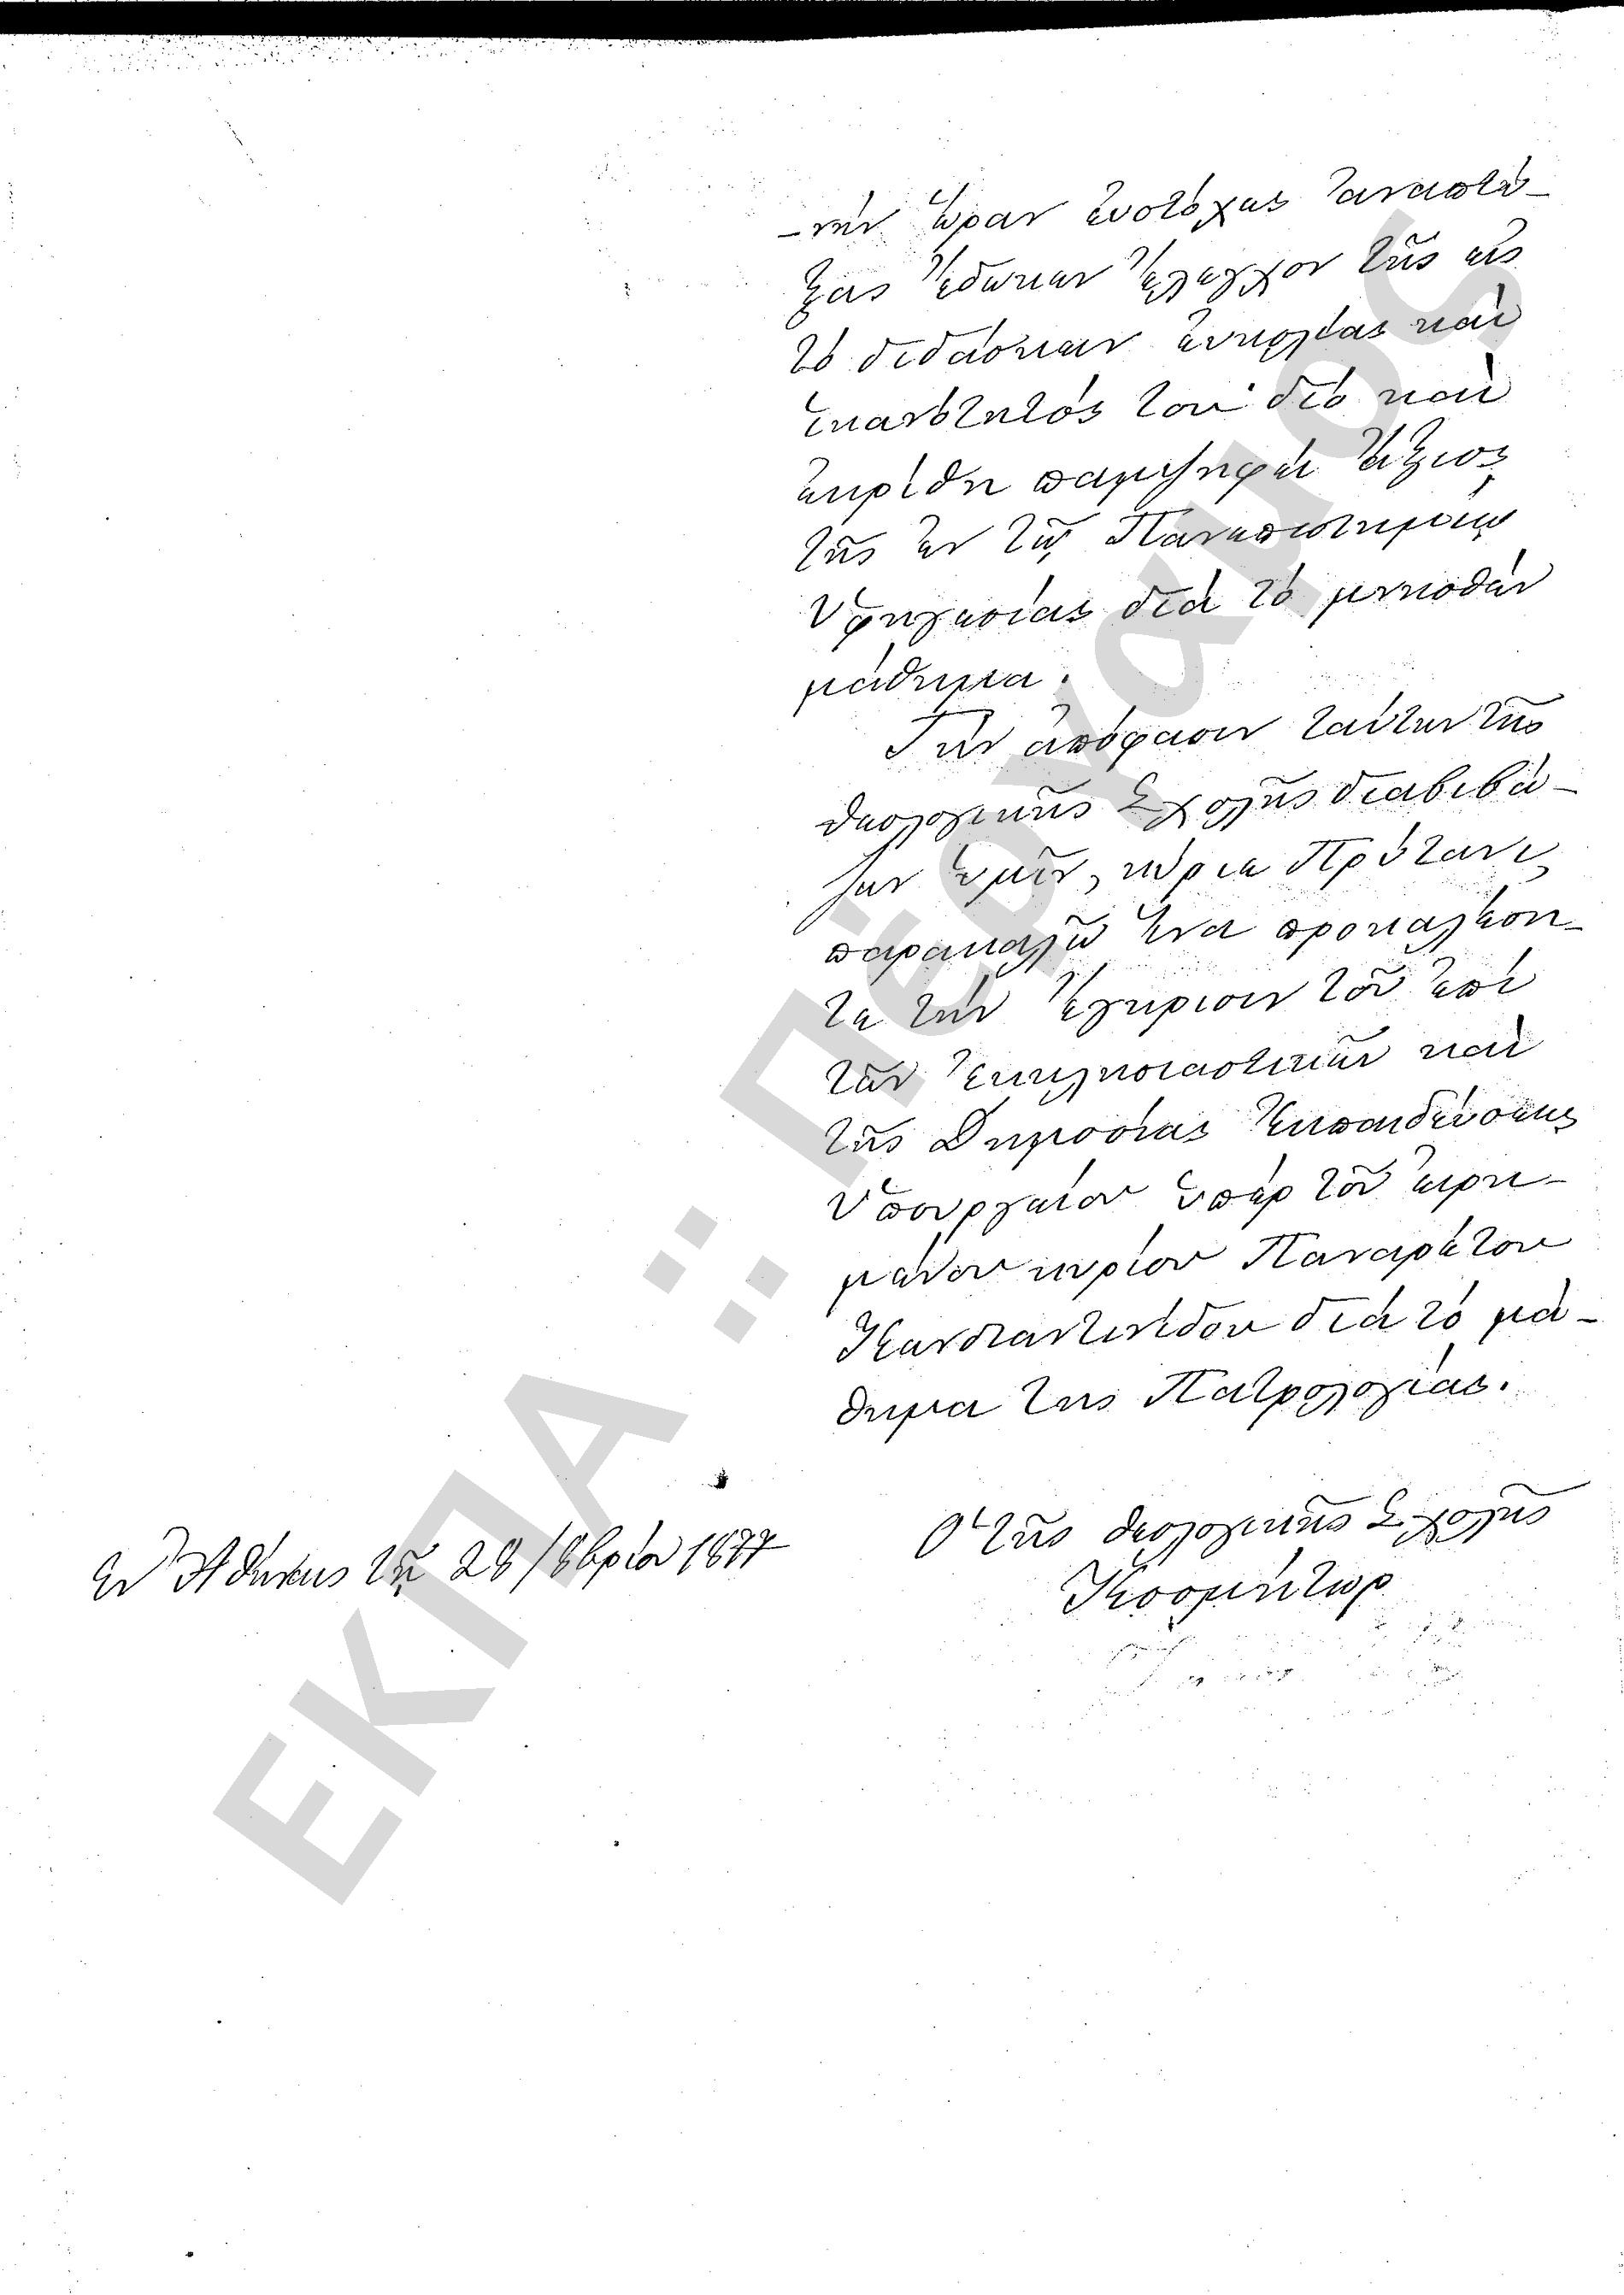 -νὴν ὥραν εὐστόχως ἀναπτύ-
ξας ἔδωκεν ἔλεγχον τῆς εἰς
τὸ διδάσκειν εὐκολίας καὶ
ἱκανότητός του· διὸ καὶ
ἐκρίθη παμψηφεὶ ἄξιος
τῆς ἐν τῷ Πανεπιστημείῳ
Ὑφηγεσίας διὰ τὸ μνησθὲν
μάθημα.
Τὴν ἀπόφασιν ταύτην τῆς
θεολογικῆς Σχολῆς διαβιβά-
ζων ὑμῖν, κύριε Πρύτανι,
παρακαλῶ ἵνα προκαλέση-
τε τὴν ἔγκρισιν τοῦ ἐπὶ
τῶν Ἐκκλησιαστικῶν καὶ
τῆς Δημοσίας Ἐκπαιδεύσεως
Ὑπουργείου ὑπὲρ τοῦ εἰρη-
μένου κυρίου Παναρέτου
Κωνσταντινίδου διὰ τὸ μά-
θημα τῆς Πατρολογίας.
Ἐν Ἀθήναις τῇ 28/8βρίου 1877
Ὁ τῆς θεολογικῆς Σχολῆς
Κοσμήτωρ
ΕΚΠΑ :: Πέργαμος